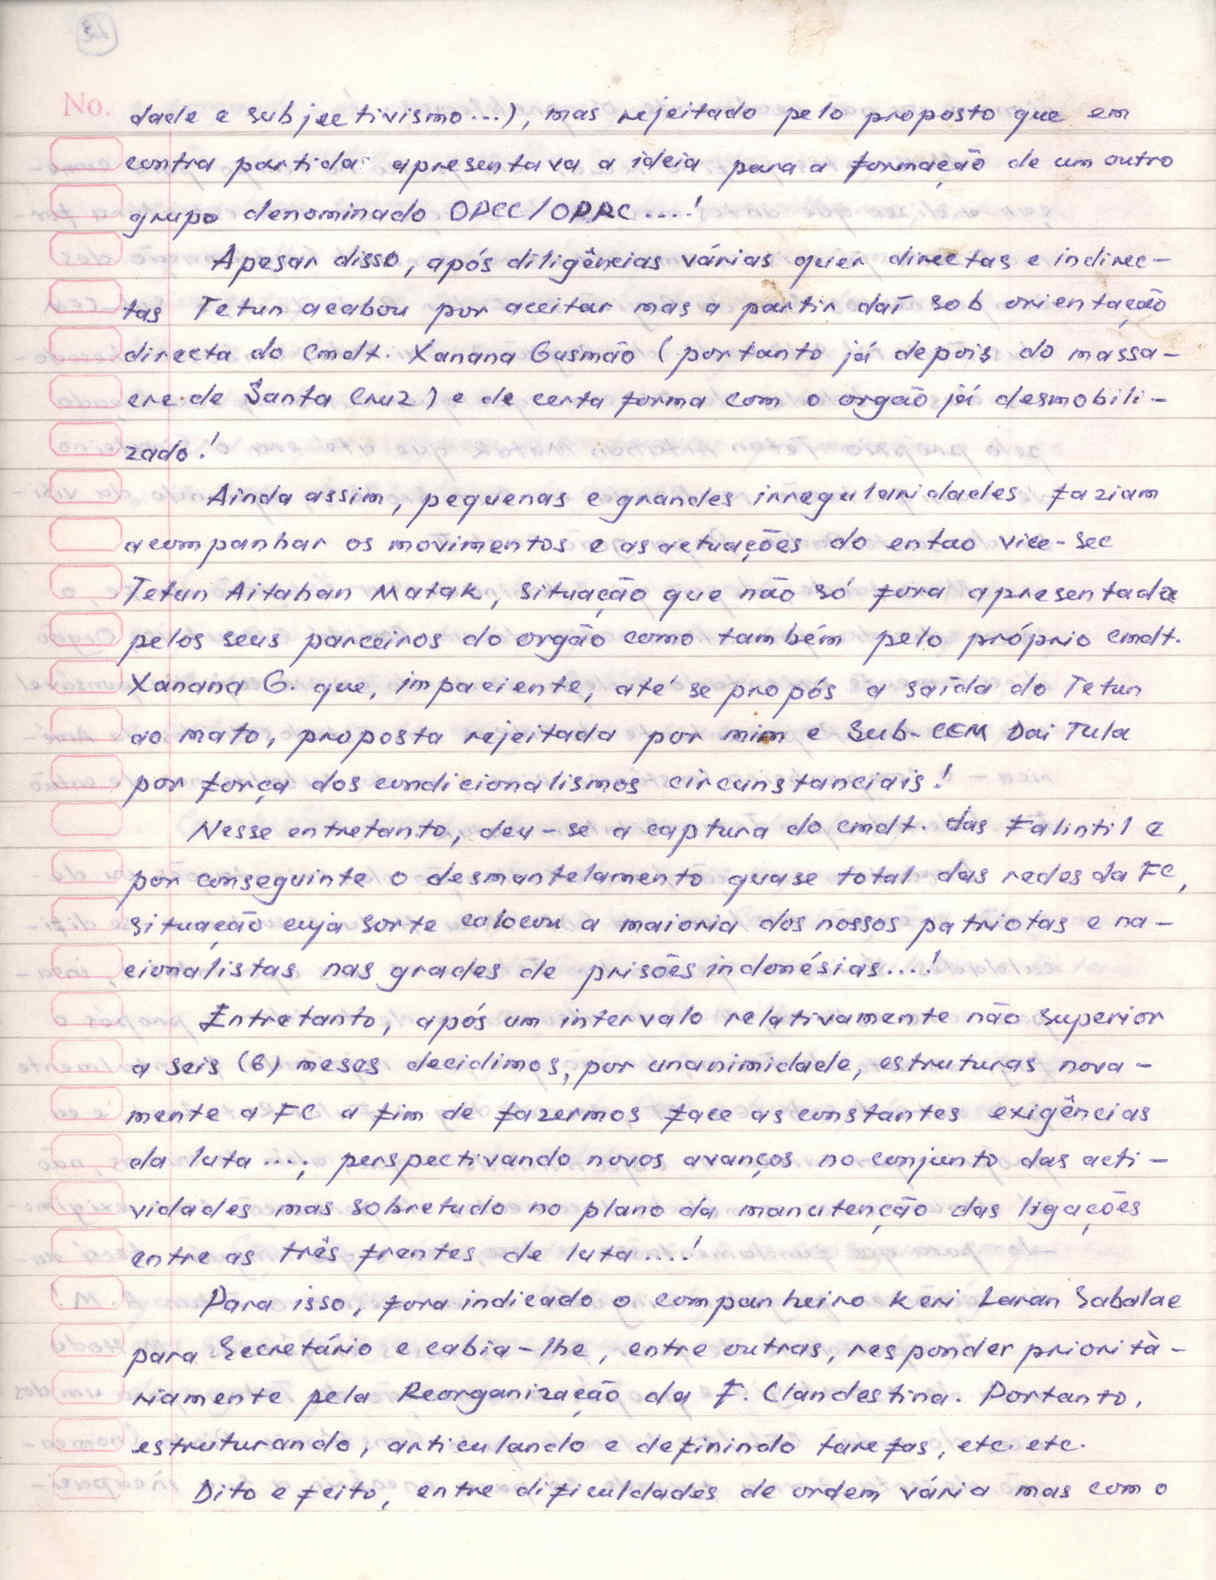 No.
dade e subjectivismo...), mas rejeitado pelo proposto que em
contra partida apresentava a ideia para a formação de um outro
grupo denominado OPCC/OPRC....!
Apesar disso, após diligências várias quer directas e indirec-
tas Tetun acabou por aceitar mas a partir daí sob orientação
directa do Cmdt. Xanana Gusmão (portanto já depois do massa-
cre de Santa Cruz) e de certa forma com o orgão já desmobili-
zado!
Ainda assim, pequenas e grandes irregularidades faziam
acompanhar os movimentos e as actuações do entao vice-sec
Tetun Aitahan Matak, situação que não só fora apresentada
pelos seus parceiros do orgão como também pelo próprio cmdt.
Xanana G. que, impaciente, até se propós a saída do Tetun
ao mato, proposta rejeitada por mim e Sub-CEM Dai Tula
por força dos condicionalismos circunstanciais!
Nesse entretanto, deu-se a captura do cmdt. das Falintil e
por conseguinte o desmantelamento quase total das redes da FC,
situação cuja sorte colocou a maioria dos nossos patriotas e na-
cionalistas nas grades de prisões indonésias....!
Entretanto, após um intervalo relativamente não superior
a seis (6) meses decidimos, por unanimidade, estruturas nova-
mente a FC a fim de fazermos face as constantes exigências
da luta...., perspectivando novos avanços no conjunto das acti-
vidades mas sobretudo no plano da manutenção das ligações
entre as três frentes de luta....!
Para isso, fora indicado o companheiro Keri Laran Sabalae
para Secretário e cabia-lhe, entre outras, responder priorità-
riamente pela Reorganização da F. Clandestina. Portanto,
estruturando, articulando e definindo tarefas, etc. etc.
Dito e feito, entre dificuldades de ordem vária mas com o